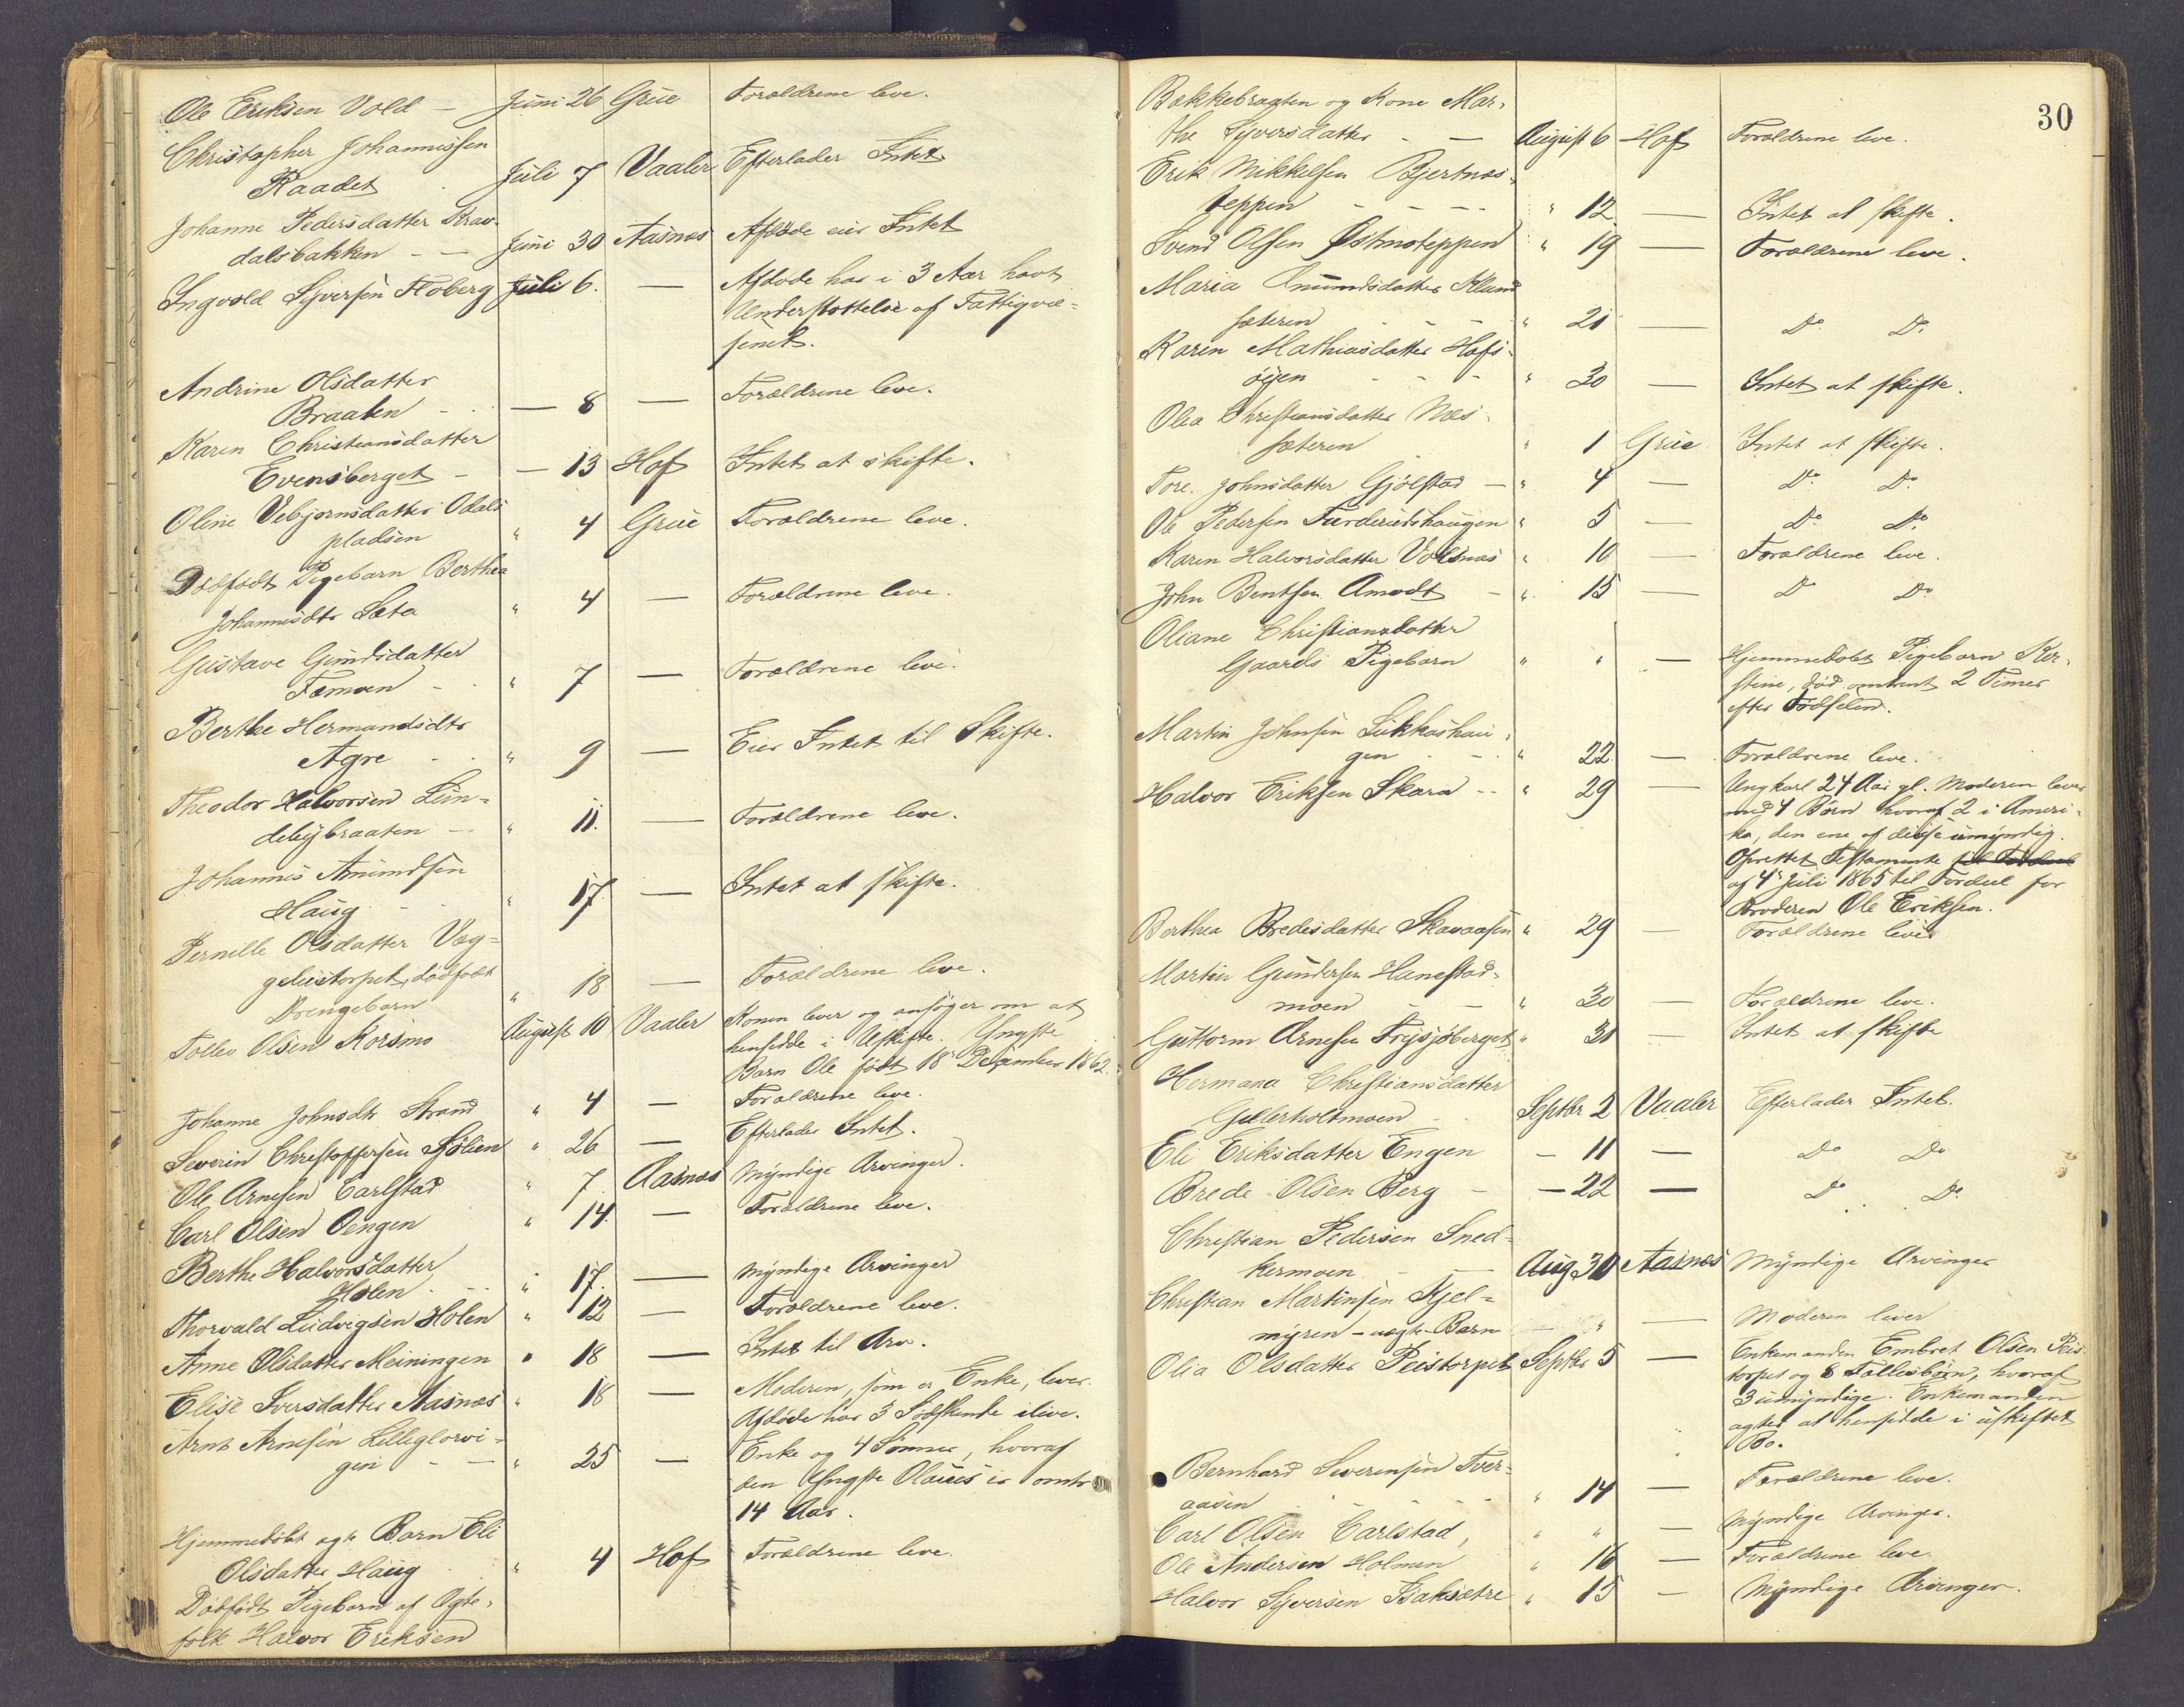 Ole Eriksen Vold — Juni 26 Grue Forældrene leve.
Christopher Johannissen
Raadet Juli 7 Vaaler Efterlader Intet
Johanne Pedersdatter Krav-
dalsbakken — — Juni 30 Aasnæs Afdøde eier Intet
Ingvold Syversen Floberg Juli 6. — Afdøde har i 3 Aar havt
Understøttelse af Fattigvæ-
senet.
Andrine Olsdatter
Braaten — — 8 — Forældrene leve.
Karen Christiansdatter
Evensberget — — 13 Hof Intet at skifte.
Oline Vebjørnsdatter Odals
pladsen " 4 Grue Forældrene leve.
Dødfødt Pigebarn Berthea
Johannisdtr Sæta " 4 — Forældrene leve.
Gustave Gundsdatter
Tæmoen " 7 — Forældrene leve.
Berthe Hermandsdtr
Agre " 9 — Eier Intet til Skifte.
Theodor Halvorsen Lün-
debybraaten — " 11. — Forældrene leve.
Johannis Amundsen
Haug " 17. — Intet at skifte.
Pernille Olsdatter Vag-
gelustorpet, dødfødt
Drengebarn " 18 — Forældrene leve.
Tollev Olsen Korsmo August 10 Vaaler Konen lever og ansøger om at
hensidde i Uskifte. Yngste
Barn Ole født 18 December 1862.
Johanne Johnsdtr Strand " 4 — Forældrene leve.
Severin Christoffersen Sjølien " 26 — Efterlader Intet.
Ole Arnesen Carlstad " 7. Aasnæs Myndige Arvinger.
Carl Olsen Oengen " 14. — Forældrene leve.
Berthe Halvorsdatter
Holen " 17. — Myndige Arvinger
Thorvald Ludvigsen Holen " 12 — Forældrene leve.
Anne Olsdatter Meiningen " 18 — Intet til Arv.
Elise Iversdatter Aasnæs " 18 — Moderen, som er Enke, lever.
Afdøde har 3 Sødskende ilive.
Arne Arnesen Lilleglorvi-
gen — — " 25 — Enke og 4 Sønner, hvoraf
den Yngste Olaves er omtr
14 Aar.
Hjemmedøbt ægte Barn Eli
Olsdatter Haug " 4 Hof Forældrene leve.
Dødfødt Pigebarn af Ægte-
folk Halvor Eriksen
30
Bakkebraaten og Kone Mar-
the Syversdatter — August 6 Hof Forældrene leve.
Erik Mikkelsen Bjertnæs-
teppen " 12 — Intet at skifte.
Svend Olsen Østmoteppen " 19 — Forældrene leve.
Maria Amundsdatter Klund
sæteren " 21 — Do. Do.
Karen Mathiasdatter Hofs-
øien " 30 — Intet at skifte.
Olea Christiansdatter Næs-
sæteren " 1 Grue Intet at skifte.
Tore Johnsdatter Gjølstad — " 4 — Do. Do.
Ole Pedersen Furderudshaugen " 5 — Do. Do.
Karen Halvorsdatter Volsnæs " 10 — Forældrene leve.
John Bentsen Amodt — " 15 — Do Do
Oliane Christiansdatter
Gaards Pigebarn " " — Hjemmedøbt Pigebarn Ker-
stine, død omtrent 2 Timer
efter Fødselen.
Martin Johnsen Lukkashau-
gen " 22 — Forældrene leve.
Halvor Eriksen Skara " 29 — Ungkarl 24 Aar gl. Moderen lever
med 4 Børn hvoraf 2 i Ameri-
ka, den ene af disse umyndig.
Oprettet Testamente til Fordeel
af 4 Juli 1865 til Fordeel for
Broderen Ole Eriksen.
Berthea Bredesdatter Skavaasen " 29 — Forældrene leve
Martin Gundersen Hanestad-
moen — — " 30 — Forældrene leve.
Guttorm Arnesen Frysjøberget " 31 — Intet at skifte
Hermana Christiansdatter
Gillerholtmoen Septbr 2 Vaaler Efterlader Intet.
Eli Eriksdatter Engen — 11 — Do Do
Brede Olsen Berg — — 22 — Do Do.
Christian Pedersen Sned-
kermoen — Aug 30 Aasnæs Myndige Arvinger
Christian Martinsen Kjel-
myren — uægte Barn — " — Moderen lever
Olia Olsdatter Peistorpet Septbr 5 — Enkemanden Embret Olsen Peis-
torpet og 8 Fællesbørn, hvoraf
3 umyndige. Enkemanden
agter at hensidde i uskiftet
Bo.
Bernhard Severinsen Tver-
aasen " 14 — Forældrene leve.
Carl Olsen Carlstad, " " — Myndige Arvinger.
Ole Andersen Holmen " 16 — Forældrene leve.
Halvor Syversen Baksætre " 15 — Myndige Arvinger.